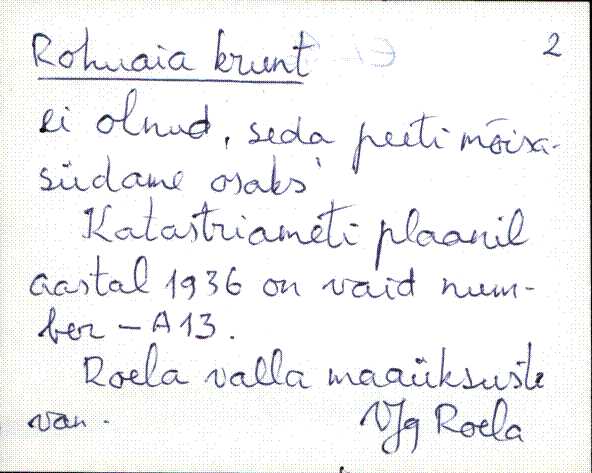 Rohuaia krunt 2
ei olnud, seda peeti mõisa-
südame osaks
Katastriameti plaanil
aastal 1936 on vaid num-
ber - A13.
Roela valla maaüksuste
van. VJg Roela